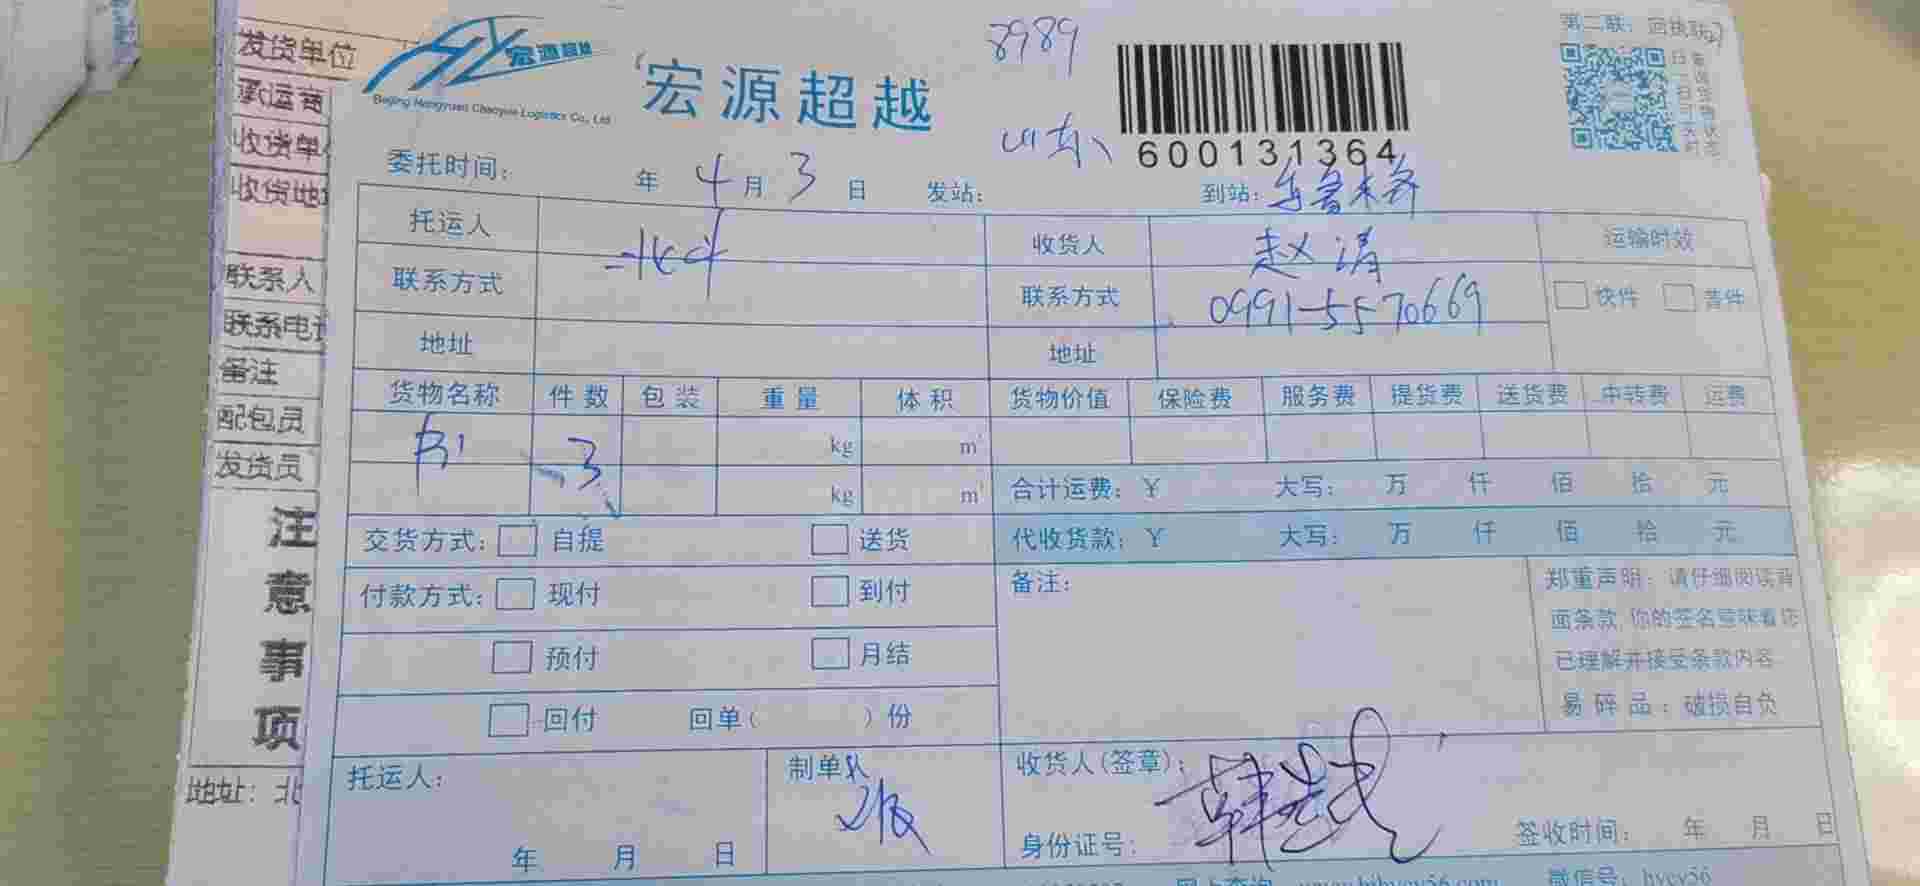 宏源超越
Beijing Hongyuan Chaoyue Logistics Co., Ltd
宏源超越
8989
山东
600131364
第二联：回执联
委托时间： 年 4 月 3 日 发站： 到站：乌鲁木齐
托运人 收货人 赵清 运输时效
联系方式 联系方式 0991-5570669 快件 普件
地址 地址
货物名称 件数 包装 重量 体积 货物价值 保险费 服务费 提货费 送货费 中转费 运费
书 3 kg m³
kg m³ 合计运费：¥ 大写： 万 仟 佰 拾 元
交货方式： 自提 送货 代收货款：¥ 大写： 万 仟 佰 拾 元
付款方式： 现付 到付 备注：
预付 月结
回付 回单（ ）份
郑重声明：请仔细阅读背
面条款，你的签名意味着您
已理解并接受条款内容
易碎品：破损自负
托运人： 制单人 收货人(签章)：
年 月 日 身份证号： 签收时间： 年 月 日
微信号：hycy56
发货单位
承运商
收货单
收货地
联系人
联系电
备注
配包员
发货员
注
意
事
项
地址：北